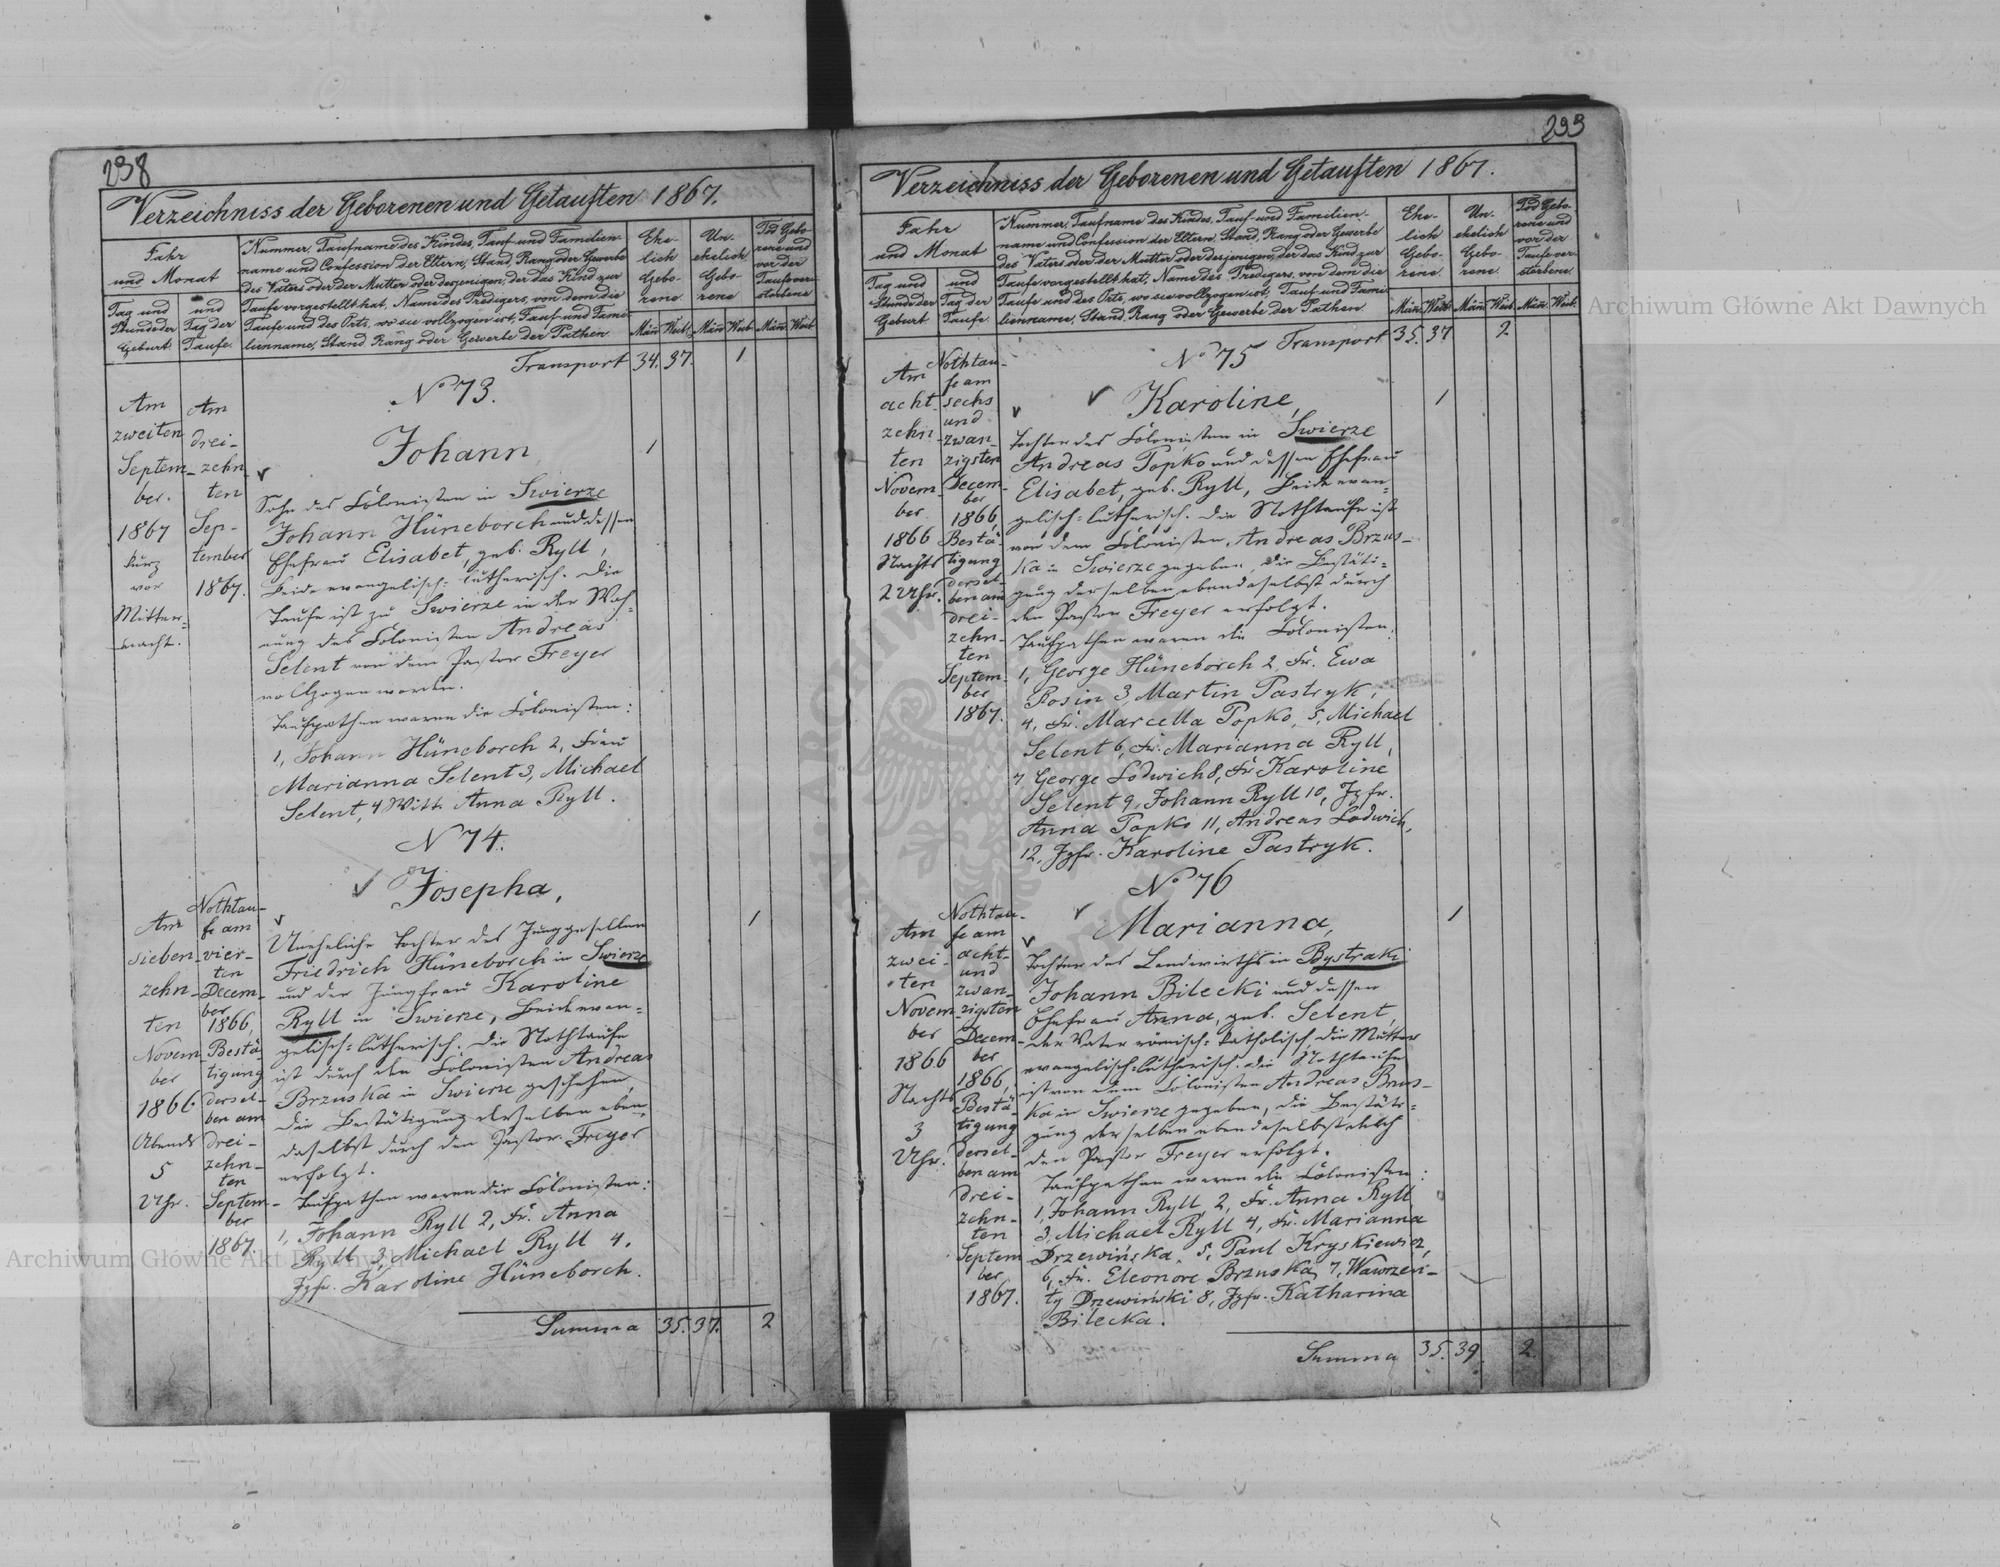 238
Verzeichniss der Geborenen und Getauften 1867.
Jahr
und Monat
Tag und
Stunde der
Geburt.
und
Tag der
Taufe.
Nummer, Taufname des Kindes, Tauf- und Familien-
name und Confession der Eltern, Stand, Rang oder Gewerbe
des Vaters oder der Mutter oder desjenigen, der das Kind zur
Taufe vorgestellt hat, Name des Predigers, von dem die
Taufe und des Orts, wo sie vollzogen ist, Tauf- und Fami-
lienname, Stand, Rang oder Gewerbe der Pathen.
Ehe-
lich
Gebo-
rene.
Un-
ehelich
Gebo-
rene.
Tod Gebo-
rene und
vor der
Taufe ver-
storbene.
Män. Weib. Män. Weib. Män. Weib.
Transport 34. 37. 1
Am
zweiten
Septem-
ber.
1867
kurz
vor
Mitter-
nacht.
Am
drei-
zehn-
ten
Sep-
tember
1867.
No 73.
Johann 1
Sohn des Colonisten in Swierze
Johann Hüneborch und dessen
Ehefrau Elisabet, geb. Ryll,
Beide evangelisch-lutherisch. Die
Taufe ist zu Swierze in der Woh-
nung des Colonisten Andreas
Selent von dem Pastor Freyer
vollzogen worden.
Taufpathen waren die Colonisten:
1, Johann Hüneborch 2, Frau
Marianna Selent 3, Michael
Selent, 4 Witt. Anna Ryll.
Am
sieben-
zehn-
ten
Novem-
ber
1866
Abends
5
Uhr.
Nothtau-
fe am
vier-
ten
Decem-
ber
1866,
Bestä-
tigung
dersel-
ben am
drei-
zehn-
ten
Septem-
ber
1867.
N 74.
Josepha, 1
Uneheliche Tochter des Junggesellen
Friedrich Hüneborch in Swierze
und der Jungfrau Karoline
Ryll in Swierze, Beide evan-
gelisch-lutherisch. Die Nothtaufe
ist durch den Colonisten Andreas
Brzuska in Swierze geschehen,
die Bestätigung derselben eben
daselbst durch den Pastor Freyer
erfolgt.
Taufpathen waren die Colonisten:
1, Johann Ryll 2, Fr. Anna
Ryll 3, Michael Ryll 4.
Jgfr. Karoline Hüneborch.
Summa 35. 37. 2
299
Verzeichniss der Geborenen und Getauften 1867.
Jahr
und Monat
Tag und
Stunde der
Geburt.
und
Tag der
Taufe.
Nummer, Taufname des Kindes, Tauf- und Familien-
name und Confession der Eltern, Stand, Rang oder Gewerbe
des Vaters oder der Mutter oder desjenigen, der das Kind zur
Taufe vorgestellt hat, Name des Predigers, von dem die
Taufe und des Orts, wo sie vollzogen ist, Tauf- und Fami-
lienname, Stand, Rang oder Gewerbe der Pathen.
Ehe-
lich
Gebo-
rene.
Un-
ehelich
Gebo-
rene.
Tod Gebo-
rene und
vor der
Taufe ver-
storbene.
Män. Weib. Män. Weib. Män. Weib.
Transport 35. 37 2
Am
acht-
zehn-
ten
Novem-
ber
1866
Nachts
2 Uhr.
Nothtau-
fe am
sechs
und
zwan-
zigsten
Decem-
ber
1866,
Bestä-
tigung
dersel-
ben am
drei-
zehn-
ten
Septem-
ber
1867.
No 75
Karoline, 1
Tochter des Colonisten in Swierze
Andreas Popko und dessen Ehefrau
Elisabet, geb. Ryll, Beide evan-
gelisch-lutherisch. Die Nothtaufe ist
von dem Colonisten, Andreas Brzus-
ka in Swierze gegeben, die Bestäti-
gung derselben ebendaselbst durch
den Pastor Freyer erfolgt.
Taufpathen waren die Colonisten:
1, George Hüneborch 2, Fr. Ewa
Posin 3, Martin Pastryk,
4, Fr. Marcella Popko, 5, Michael
Selent 6, Fr. Marianna Ryll,
7 George Lodwich 8, Fr Karoline
Selent 9, Johann Ryll 10, Jgfr.
Anna Popko 11, Andreas Lodwich,
12, Jgfr. Karoline Pastryk.
Am
zwei-
ten
Novem-
ber
1866
Nachts
3
Uhr.
Nothtau-
fe am
acht-
und
zwan-
zigsten
Decem-
ber
1866,
Bestä-
tigung
dersel-
ben am
drei-
zehn-
ten
Septem-
ber
1867.
No 76
Marianna, 1
Tochter des Landwirths in Bystraki
Johann Bilecki und dessen
Ehefrau Anna, geb. Selent,
der Vater römisch-katholisch, die Mutter
evangelisch-lutherisch. Die Nothtaufe
ist von dem Colonisten Andreas Brus-
ka in Swierze gegeben, die Bestäti-
gung derselben ebendaselbst durch
den Pastor Freyer erfolgt.
Taufpathen waren die Colonisten:
1, Johann Ryll 2, Fr. Anna Ryll
3, Michael Ryll 4, Fr. Marianna
Drzewińska, 5, Paul Kryskiewicz,
6, Fr. Eleonore Brzuska 7, Wawrzen-
ty Drzewiński 8, Jgfr. Katharina
Bilecka.
Summa 35. 39. 2.
Archiwum Główne Akt Dawnych
Archiwum Główne Akt Dawnych